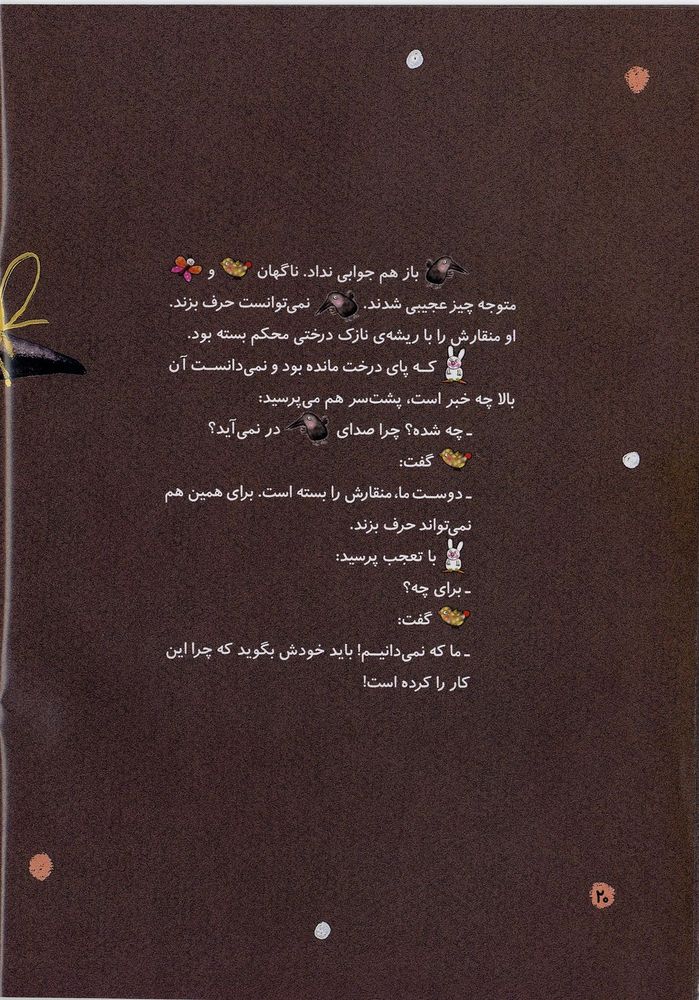 باز هم جوابی نداد. ناگهان و
متوجه چیز عجیبی شدند. نمی‌توانست حرف بزند.
او منقارش را با ریشه‌ی نازک درختی محکم بسته بود.
که پای درخت مانده بود و نمی‌دانست آن
بالا چه خبر است، پشت‌سر هم می‌پرسید:
ـ چه شده؟ چرا صدای در نمی‌آید؟
گفت:
ـ دوست ما، منقارش را بسته است. برای همین هم
نمی‌تواند حرف بزند.
با تعجب پرسید:
ـ برای چه؟
گفت:
ـ ما که نمی‌دانیم! باید خودش بگوید که چرا این
کار را کرده است!
۲۰